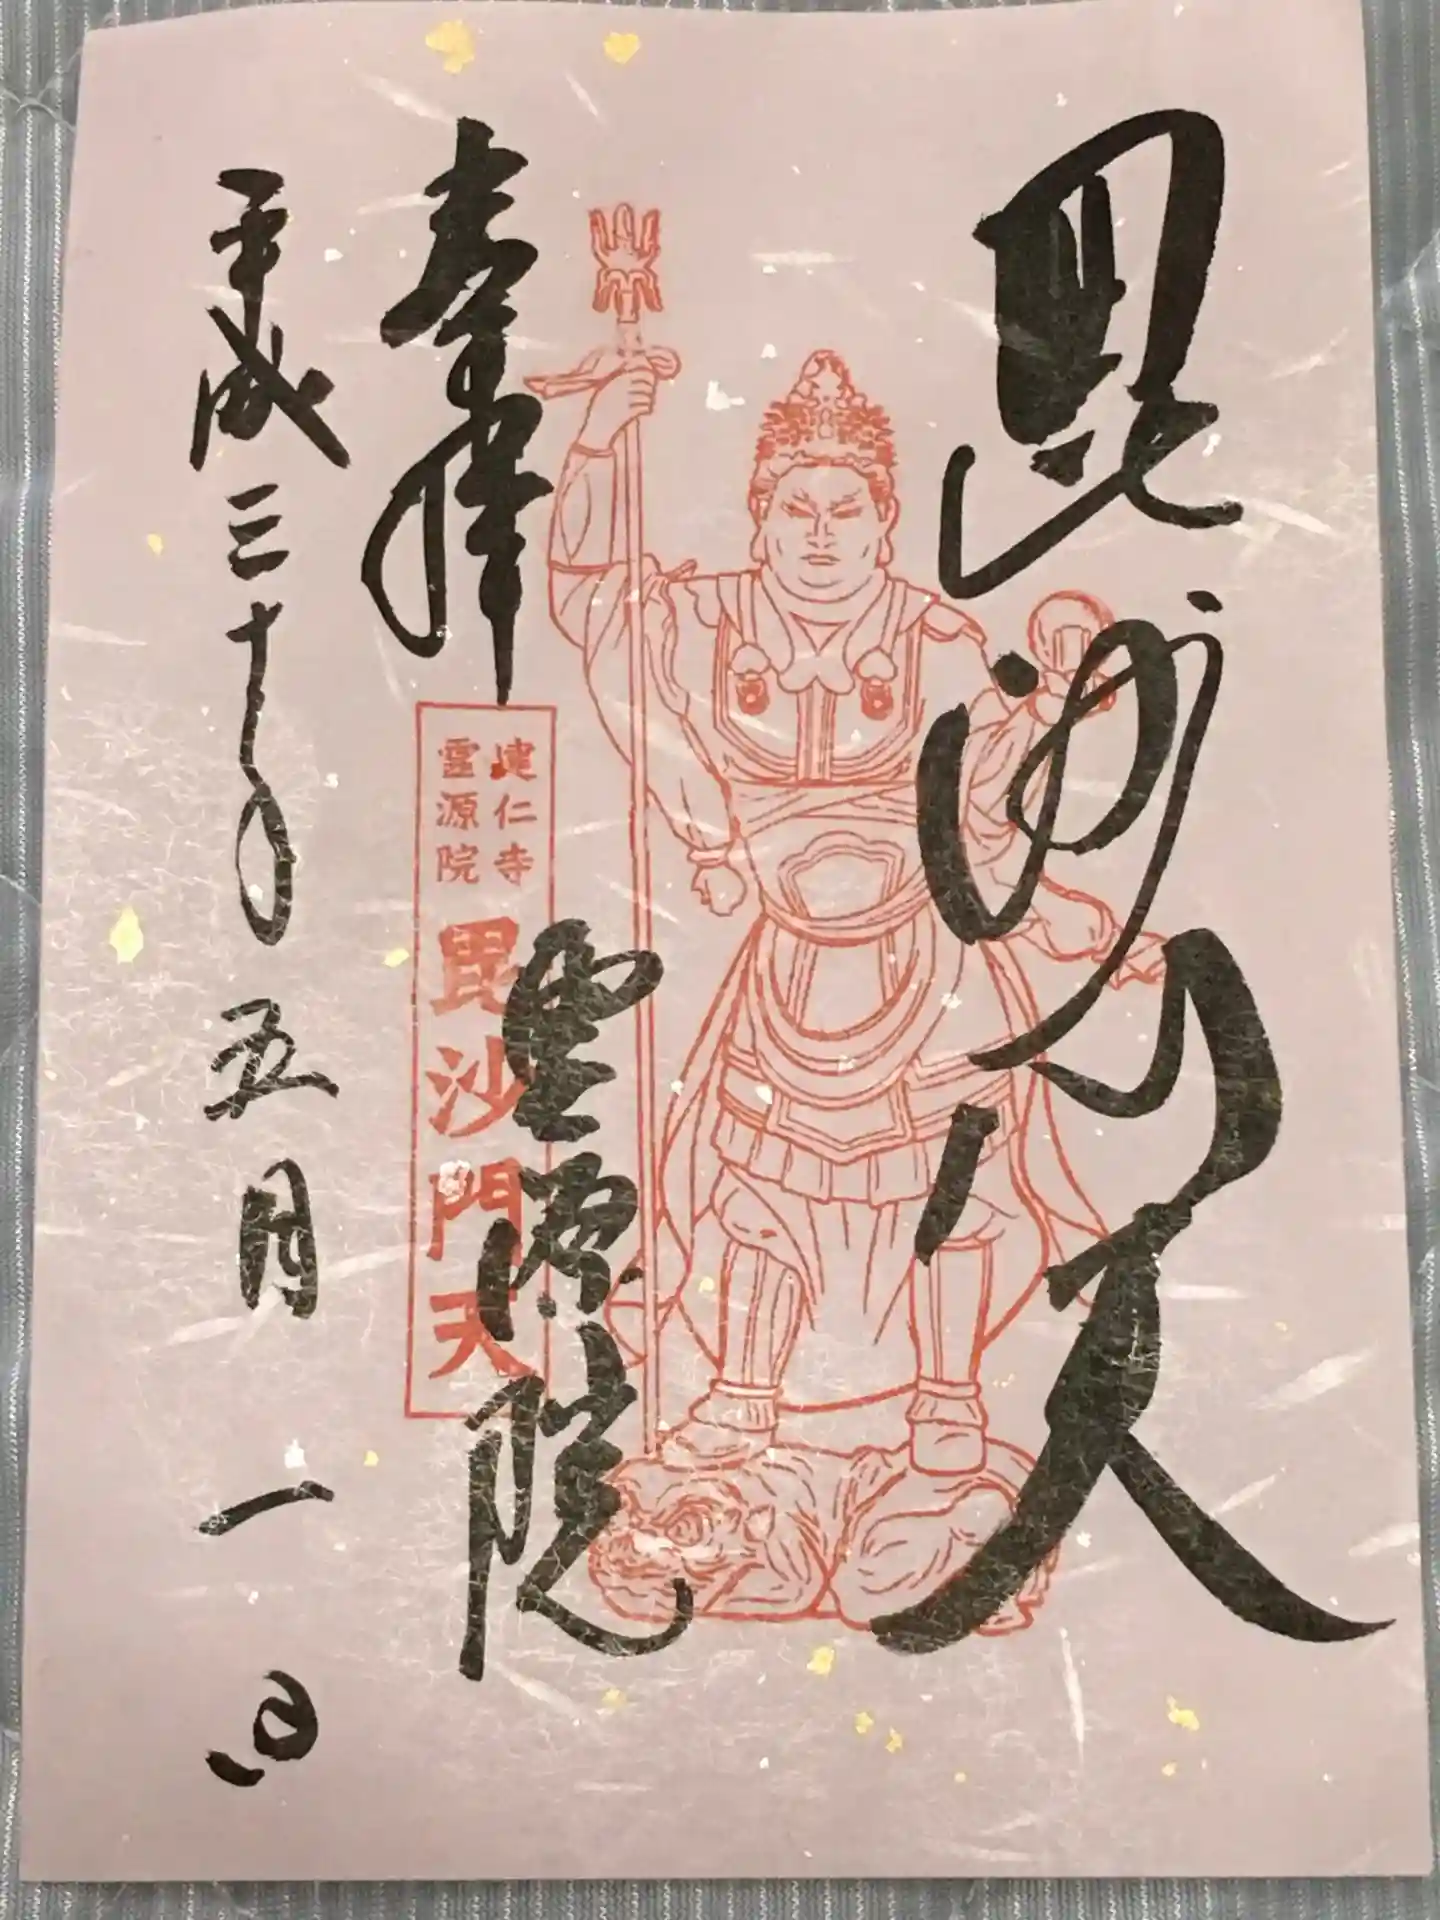 毘沙門天
奉拝
霊源院
建仁寺
霊源院
毘沙門天
平成三十年五月一日